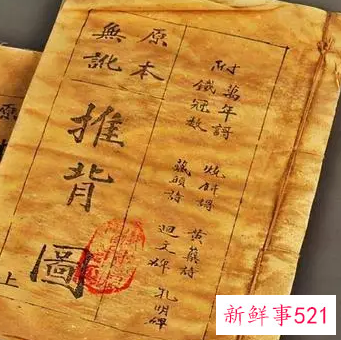 附
萬年謌 燒餅謌 黃蘗詩 孔明碑
鐵冠數 藏頭詩 迴文碑
原本
無訛
推背圖
上
原
新鲜事521